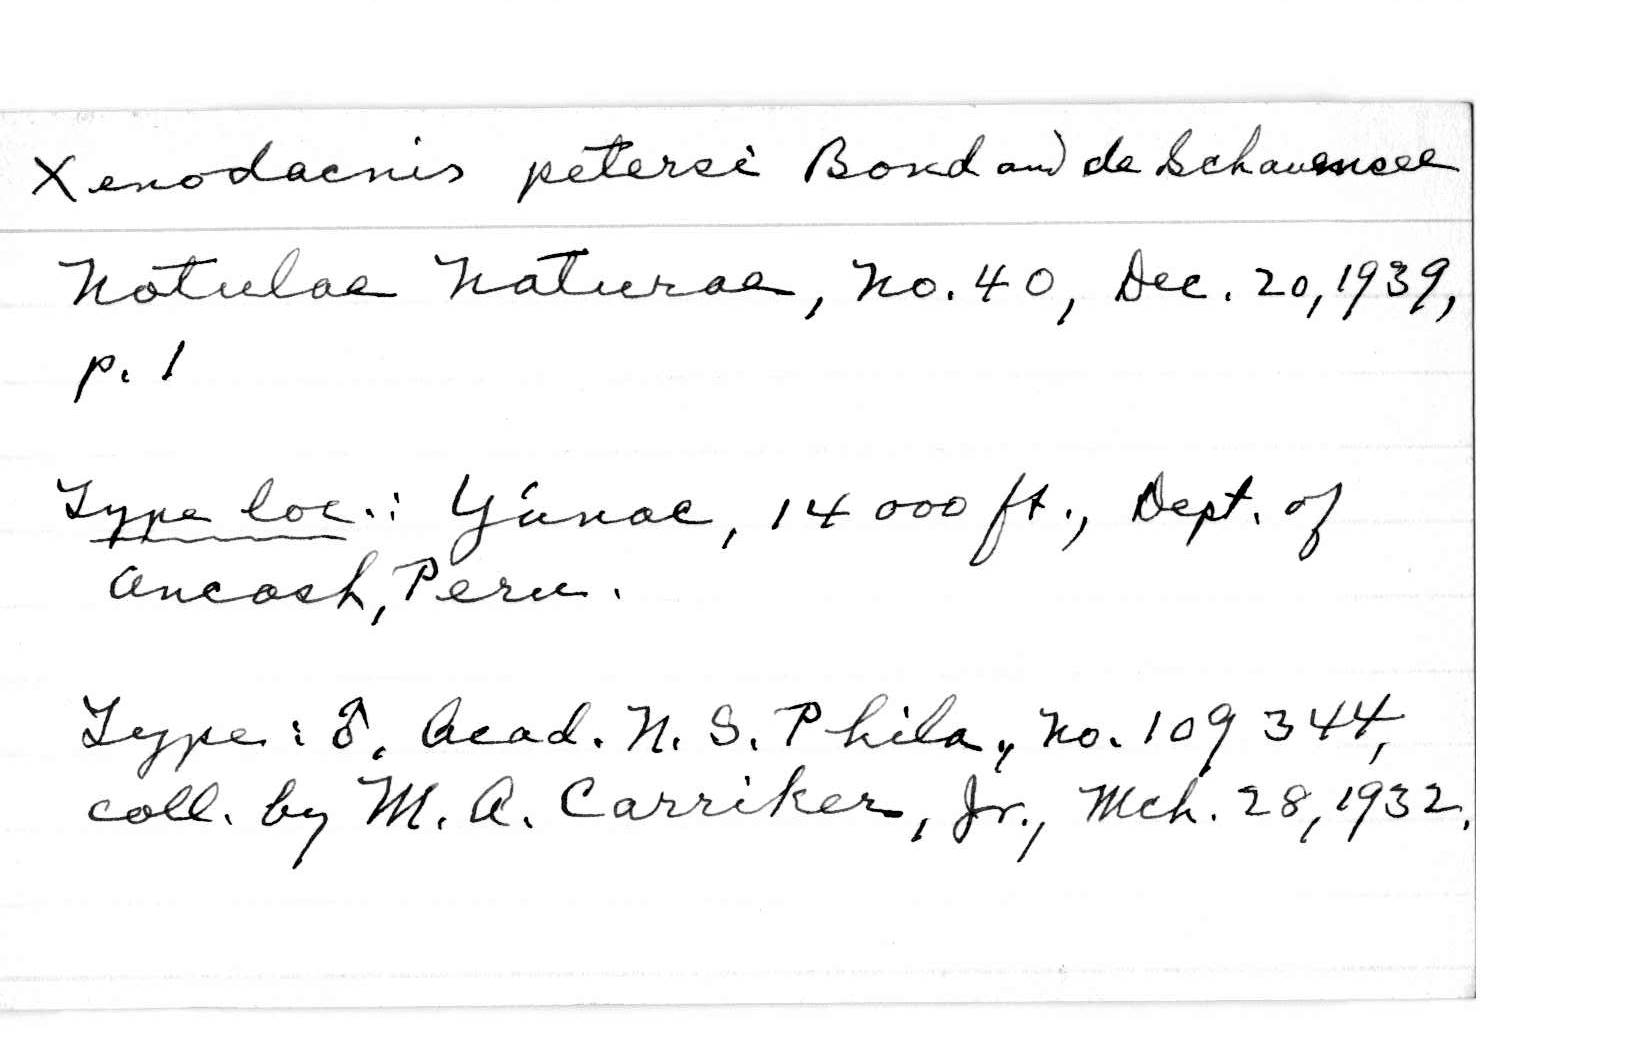 Xenodacnis petersi Bond and de Schauensee
Notulae Naturae, No. 40, Dec. 20, 1939,
p. 1
Type loc.: Yánac, 14000 ft., Dept. of
Ancash, Peru.
Type: ♂, Acad. N. S. Phila., No. 109344,
coll. by M. A. Carriker, Jr., Mch. 28, 1932.